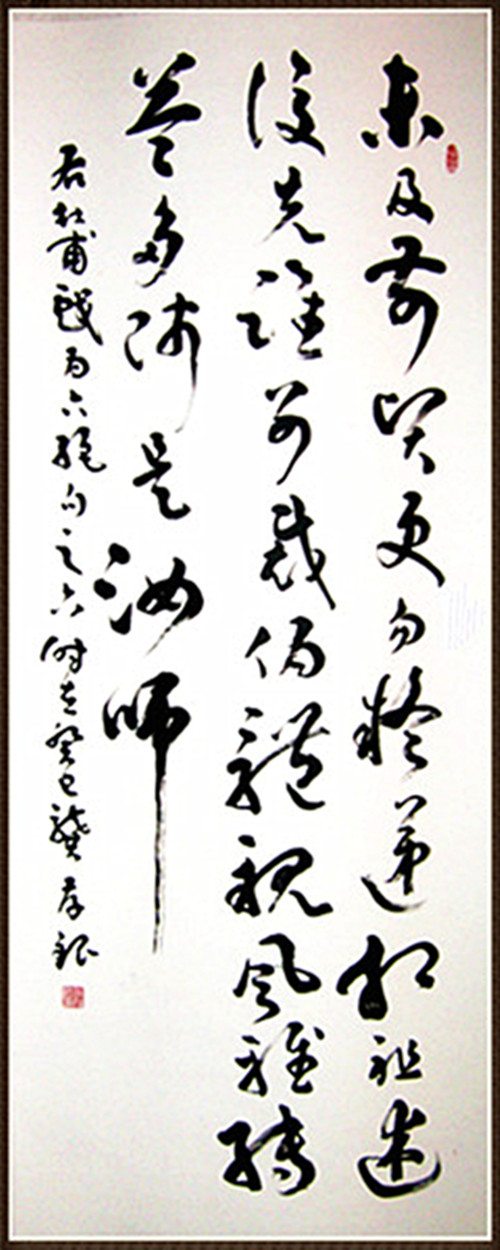 未及前賢更勿疑遞相祖述
復先誰別裁偽體親風雅轉
益多师是汝师
右杜甫戲为六絕句之六时在癸巳龔存